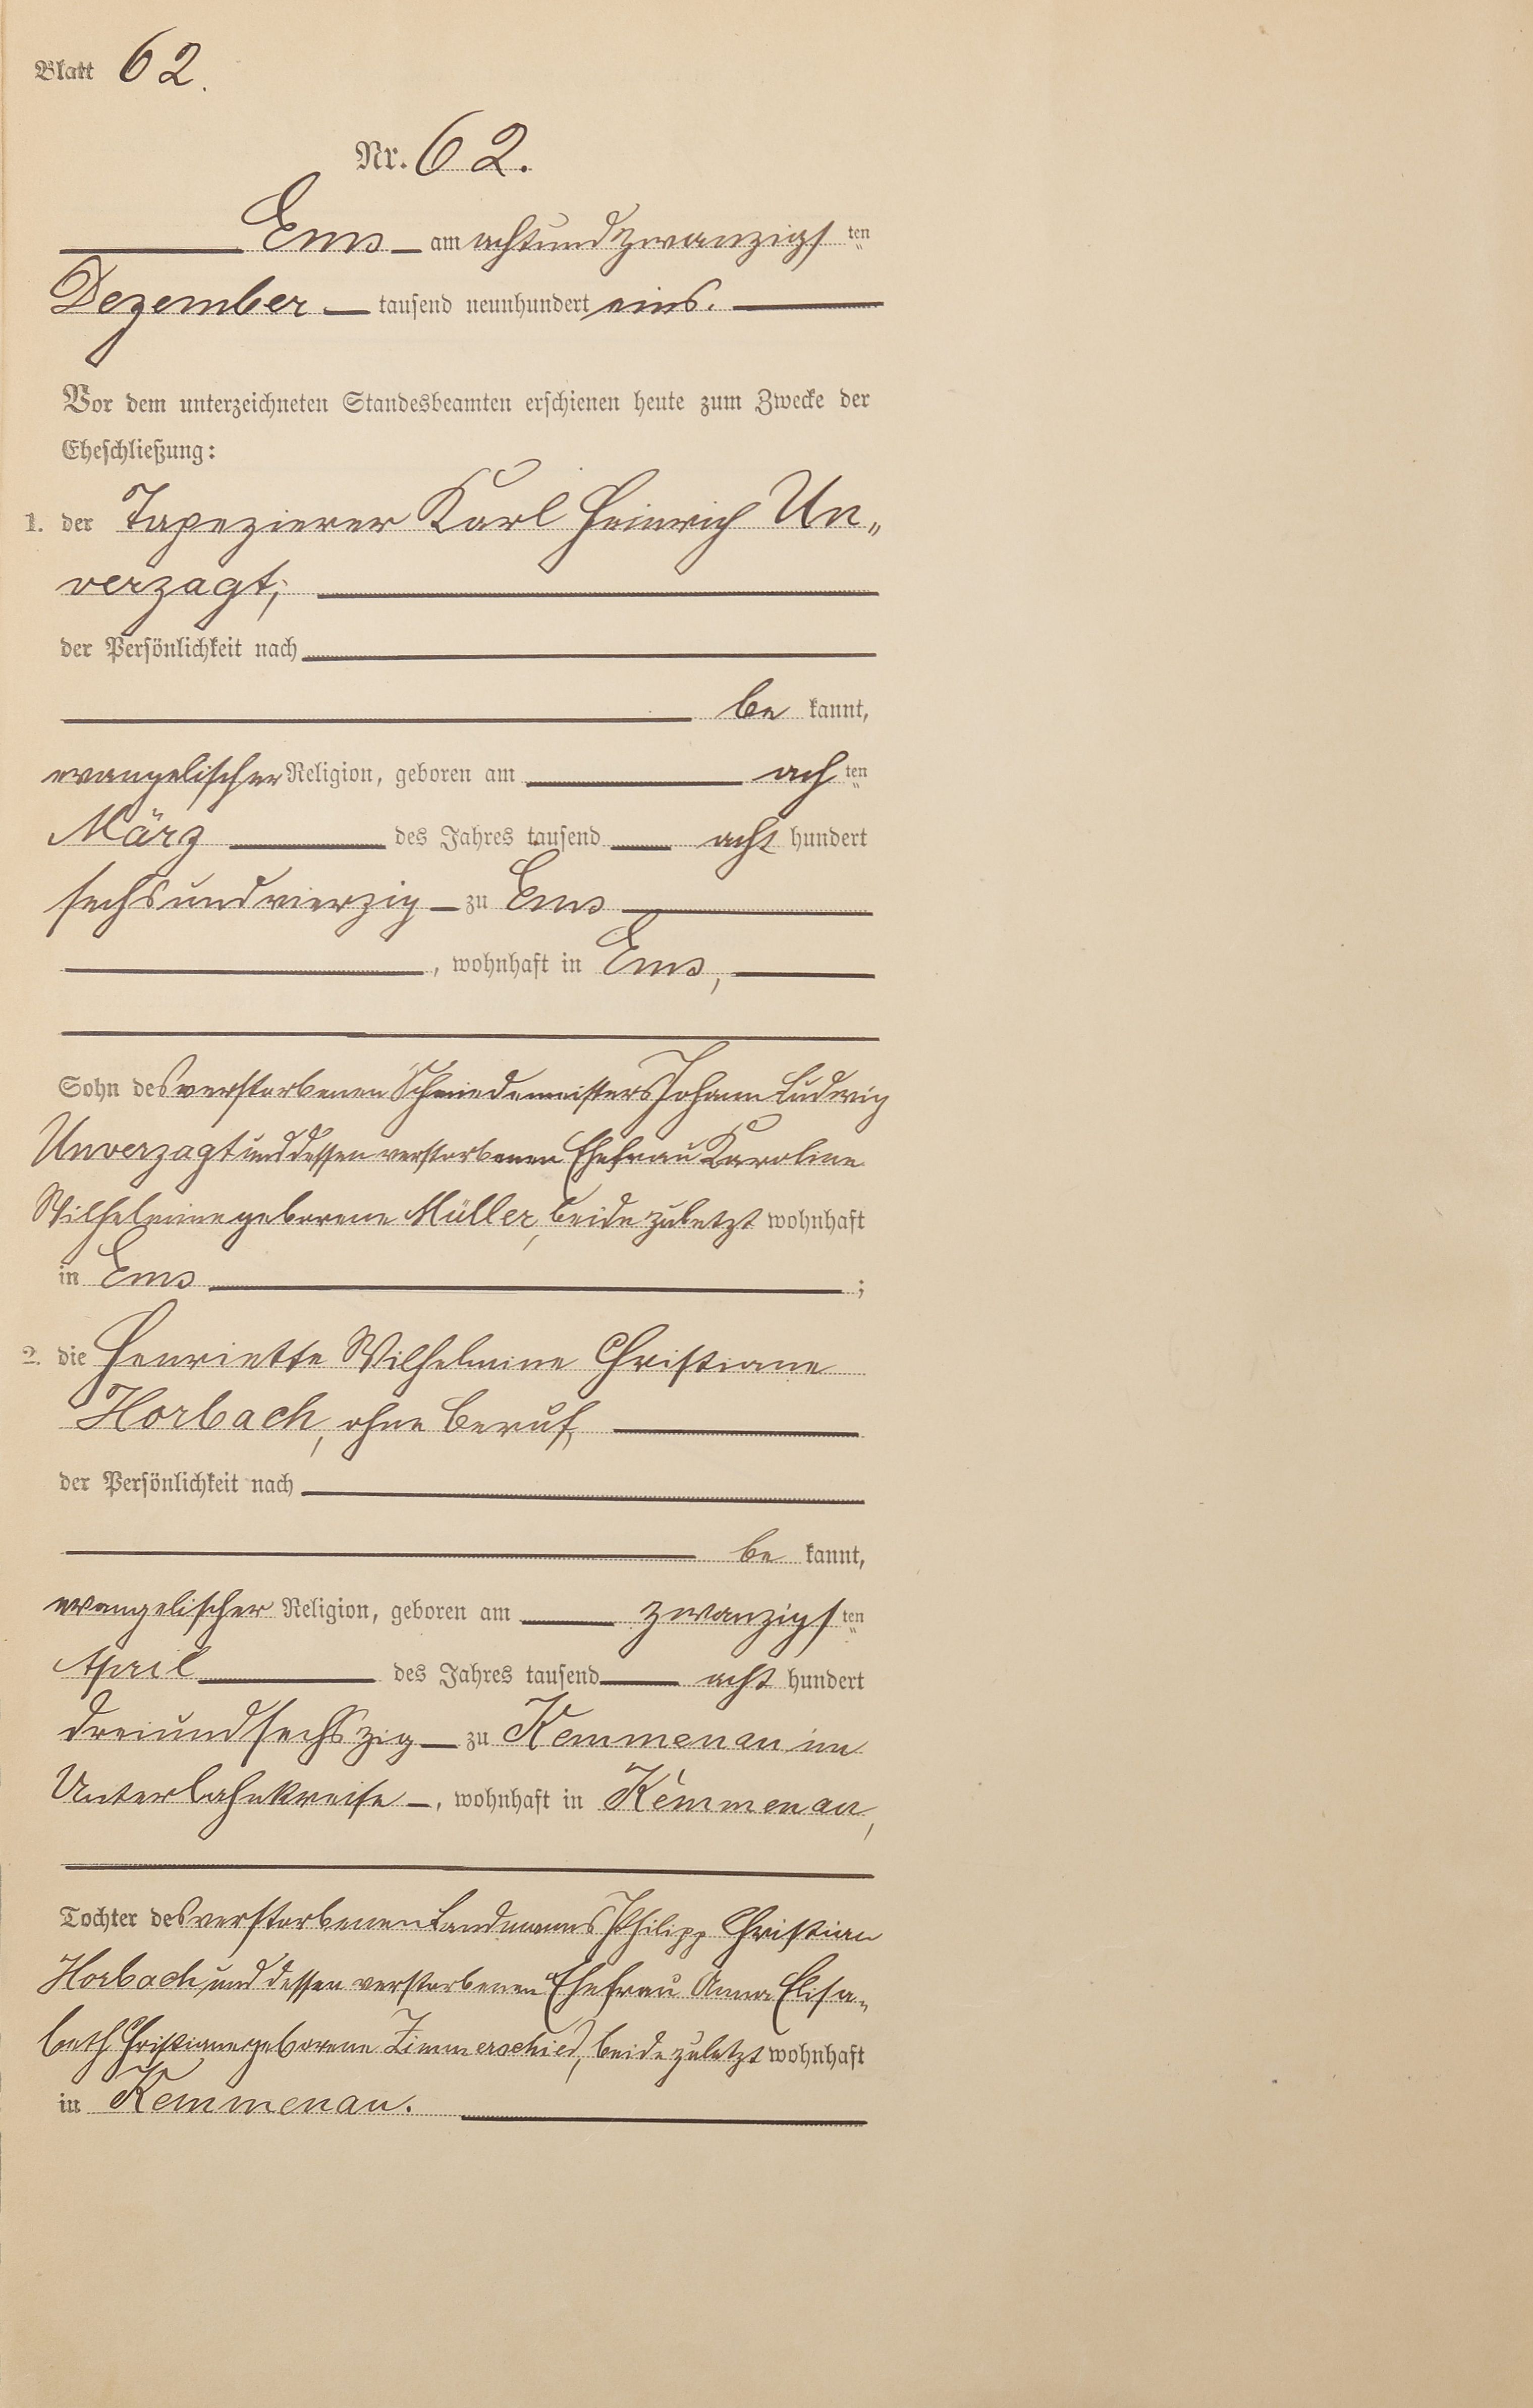 Blatt 62.
Nr. 62.
Ems am achtundzwanzigs ten
Dezember tausend neunhundert eins.
Vor dem unterzeichneten Standesbeamten erschienen heute zum Zwecke der
Eheschließung:
1. der Tapezierer Karl Heinrich Un„
verzagt;
der Persönlichkeit nach
be kannt,
evangelischer Religion, geboren am ach ten
März des Jahres tausend acht hundert
sechsundvierzig zu Ems
, wohnhaft in Ems,
Sohn des verstorbenen Schmiedemeisters Johann Ludwig
Unverzagt und dessen verstorbenen Ehefrau Karoline
Wilhelmine geborene Müller, beide zuletzt wohnhaft
in Ems ;
2. die Henriette Wilhelmine Christiane
Horbach, ohne Beruf,
der Persönlichkeit nach
be kannt,
evangelischer Religion, geboren am zwanzigs ten
April des Jahres tausend acht hundert
dreiundsechszig zu Kemmenau im
Unterlahnkreise , wohnhaft in Kemmenau,
Tochter des verstorbenen Landmanns Philipp Christian
Horbach und dessen verstorbenen Ehefrau Anna Elisa„
beth Christiane geborene Zimmerschied, beide zuletzt wohnhaft
in Kemmenau.